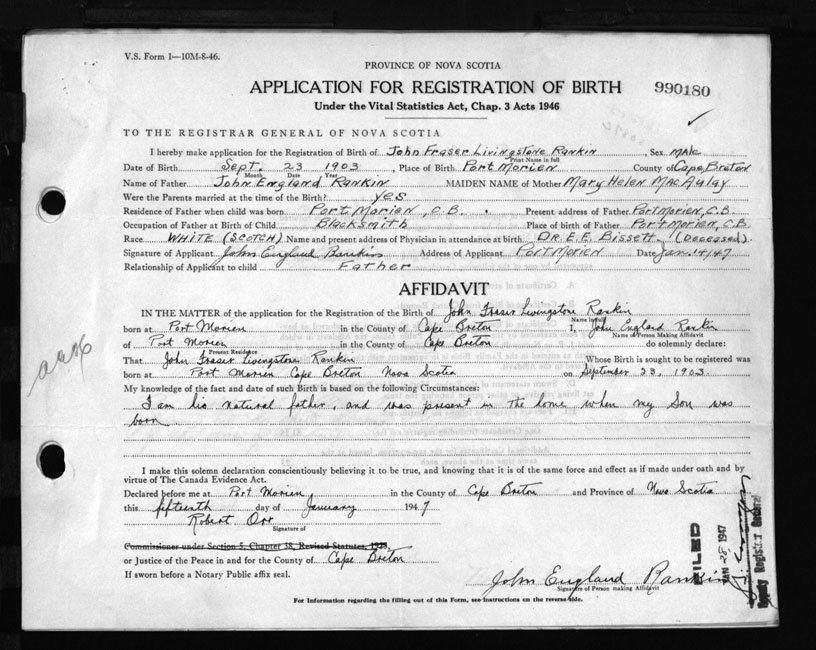 V.S. Form 1—10M-8-46.
PROVINCE OF NOVA SCOTIA
APPLICATION FOR REGISTRATION OF BIRTH 990180
Under the Vital Statistics Act, Chap. 3 Acts 1946
TO THE REGISTRAR GENERAL OF NOVA SCOTIA
I hereby make application for the Registration of Birth of John Fraser Livingstone Rankin Sex Male
Print Name in full
Date of Birth Sept. 23 1903, Place of Birth Port Morien County of Cape Breton
Month Date Year
Name of Father John England Rankin MAIDEN NAME of Mother Mary Helen MacAulay
Were the Parents married at the time of the Birth? yes.
Residence of Father when child was born Port Morien, C.B. Present address of Father Port Morien, C.B.
Occupation of Father at Birth of Child Blacksmith Place of birth of Father Port Morien, C.B.
Race White (Scotch) Name and present address of Physician in attendance at birth Dr. E.E. Bissett. (Deceased).
Signature of Applicant John England Rankin Address of Applicant Port Morien Date Jan. 14/47
Relationship of Applicant to child Father
AFFIDAVIT
IN THE MATTER of the application for the Registration of the Birth of John Fraser Livingstone Rankin
Name in full
born at Port Morien in the County of Cape Breton I, John England Rankin
Name of Person Making Affidavit
of Port Morien in the County of Cape Breton do solemnly declare:
Present Residence
That John Fraser Livingstone Rankin Whose Birth is sought to be registered was
born at Port Morien Cape Breton Nova Scotia on September 23, 1903
My knowledge of the fact and date of such Birth is based on the following Circumstances:
I am his natural father, and was present in the home when my Son was
born
I make this solemn declaration conscientiously believing it to be true, and knowing that it is of the same force and effect as if made under oath and by
virtue of The Canada Evidence Act.
Declared before me at Port Morien in the County of Cape Breton and Province of Nova Scotia
this fifteenth day of January 1947
Robert Orr
Signature of
Commissioner under Section 5, Chapter 38, Revised Statutes, 1923,
or Justice of the Peace in and for the County of Cape Breton
If sworn before a Notary Public affix seal.
John England Rankin
Signature of Person making Affidavit
For Information regarding the filling out of this Form, see instructions on the reverse side.
FILED
JAN 28 1947
Deputy Registrar General